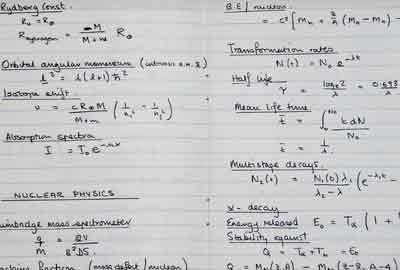 Rydberg Const.
R∞ = R∞
R hydrogen = M / (M+m) R∞
Orbital angular momentum
l² = l(l+1)ħ²
Isotope shift.
ν = cR∞M / (M+m) (1/n₁² − 1/n₂²)
Absorption spectra
I = I₀e
NUCLEAR PHYSICS
mass spectrometer
q/M =
fraction (mass defect / nucleon)
B.E / nucleon
= c² [Mₙ +
Transformation rates
N(t) = N₀ e^-λt
Half life
τ = logₑ2 / λ = 0.693
Mean life time
t̄ = ∫ t dN / N₀
t̄ = 1/λ
Multistage decays.
N₂(t) = N₁(0) λ₁ / (λ₂ − λ₁) (e^-λ₁t −
α - decay
Energy released E₀ = Tα (1 +
Stability against
Q = Tα + Tb = E₀